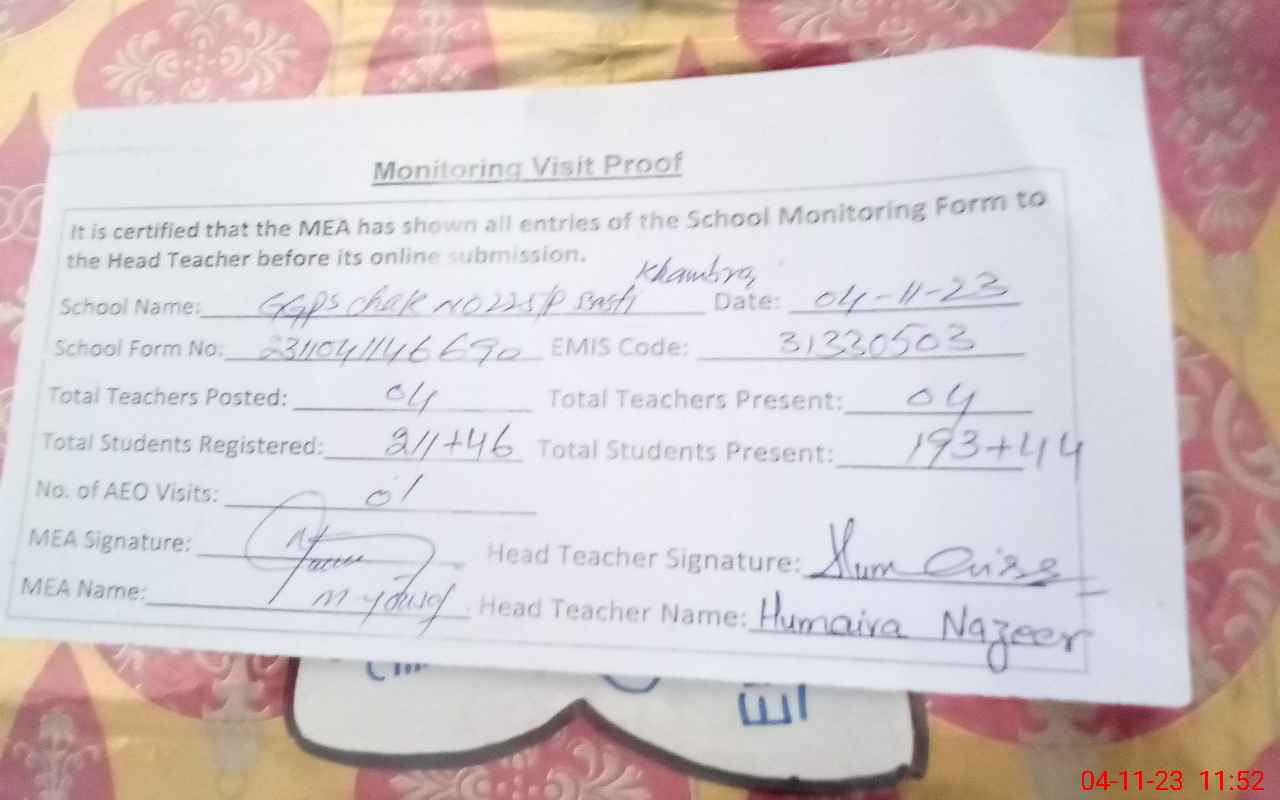 Monitoring Visit Proof
It is certified that the MEA has shown all entries of the School Monitoring Form to
the Head Teacher before its online submission.
Khambra
School Name: GGPS chak NO 225/P Basti Date: 04-11-23
School Form No: 2311041146690 EMIS Code: 31330503
Total Teachers Posted: 04 Total Teachers Present: 04
Total Students Registered: 211+46 Total Students Present: 193+44
No. of AEO Visits: 01
MEA Signature: Head Teacher Signature:
MEA Name: M Yousaf Head Teacher Name: Humaira Nazeer
04-11-23 11:52